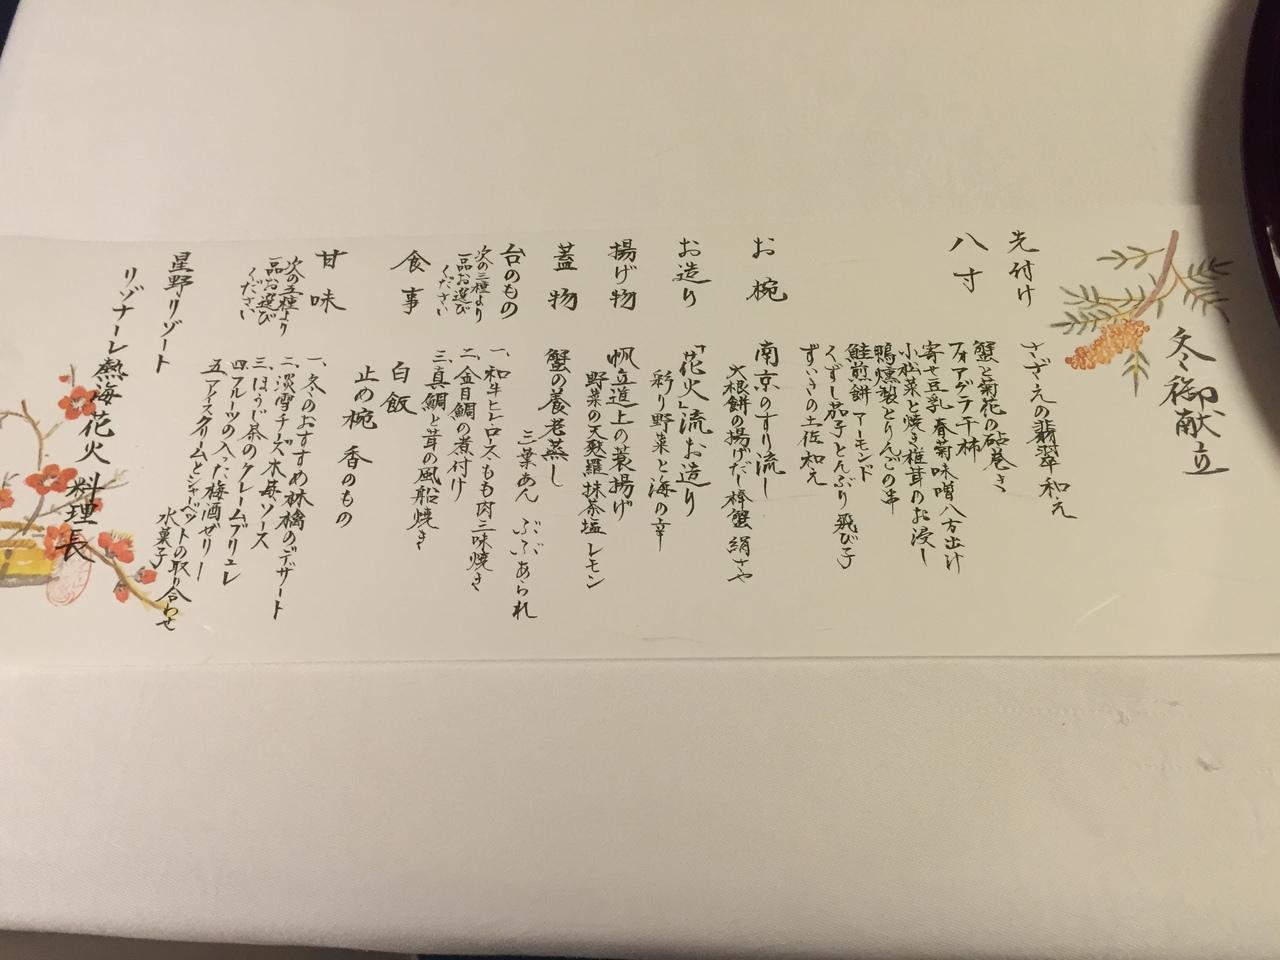 冬御献立
先付け
さざえの翡翠和え
八寸
蟹と菊花の砧巻き
フォアグラ干柿
寄せ豆乳 春菊味噌八方出汁
小松菜と焼き椎茸のお浸し
鴨燻製とりんごの串
鮭煎餅 アーモンド
くずし茄子とんぶり 飛び子
ずいきの土佐和え
お椀
南京のすり流し
大根餅の揚げだし 棒蟹 絹さや
お造り
「花火」流お造り
彩り野菜と海の幸
揚げ物
帆立道上の蓑揚げ
野菜の天麩羅 抹茶塩 レモン
蓋物
蟹の養老蒸し
三葉あん ぶぶあられ
台のもの
次の三種より
一品お選び
ください
一、和牛ヒレロースもも肉三味焼き
二、金目鯛の煮付け
三、真鯛と茸の風船焼き
食事
白飯
止め椀 香のもの
甘味
次の五種より
一品お選び
ください
一、冬のおすすめ林檎のデザート
二、淡雪チーズ 木苺ソース
三、ほうじ茶のクレームブリュレ
四、フルーツの入った梅酒ゼリー
五、アイスクリームとシャーベットの取り合わせ
水菓子
星野リゾート
リゾナーレ熱海 花火 料理長